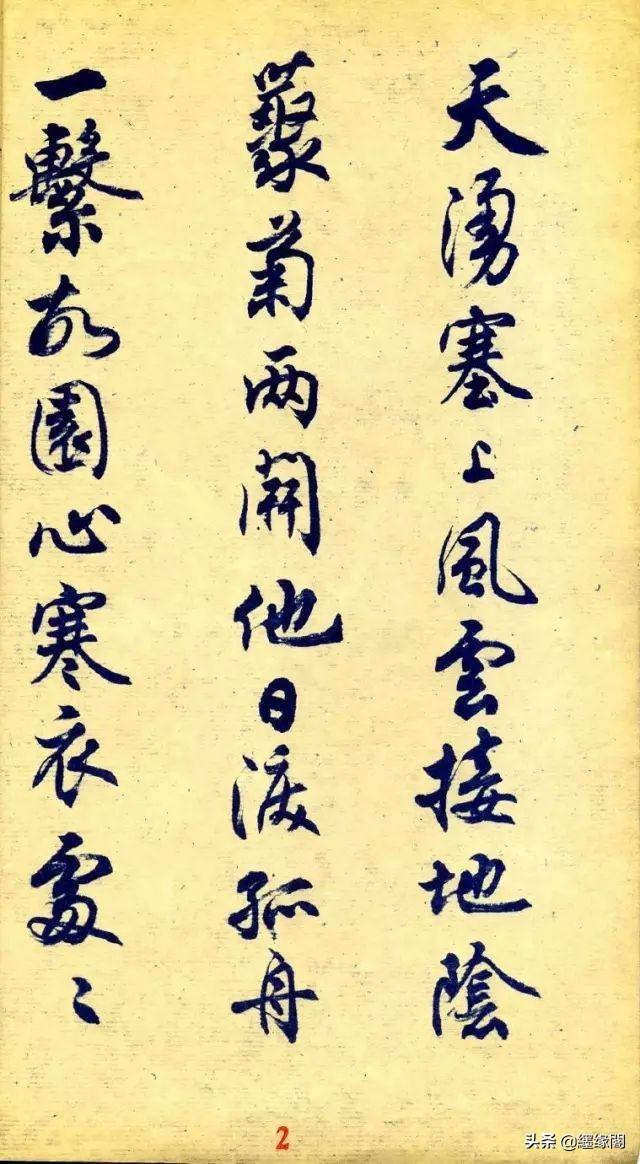 天湧塞上風雲接地陰
藂菊两開他日淚孤舟
一繫故園心寒衣處〻
2
头条 @纆缘閣